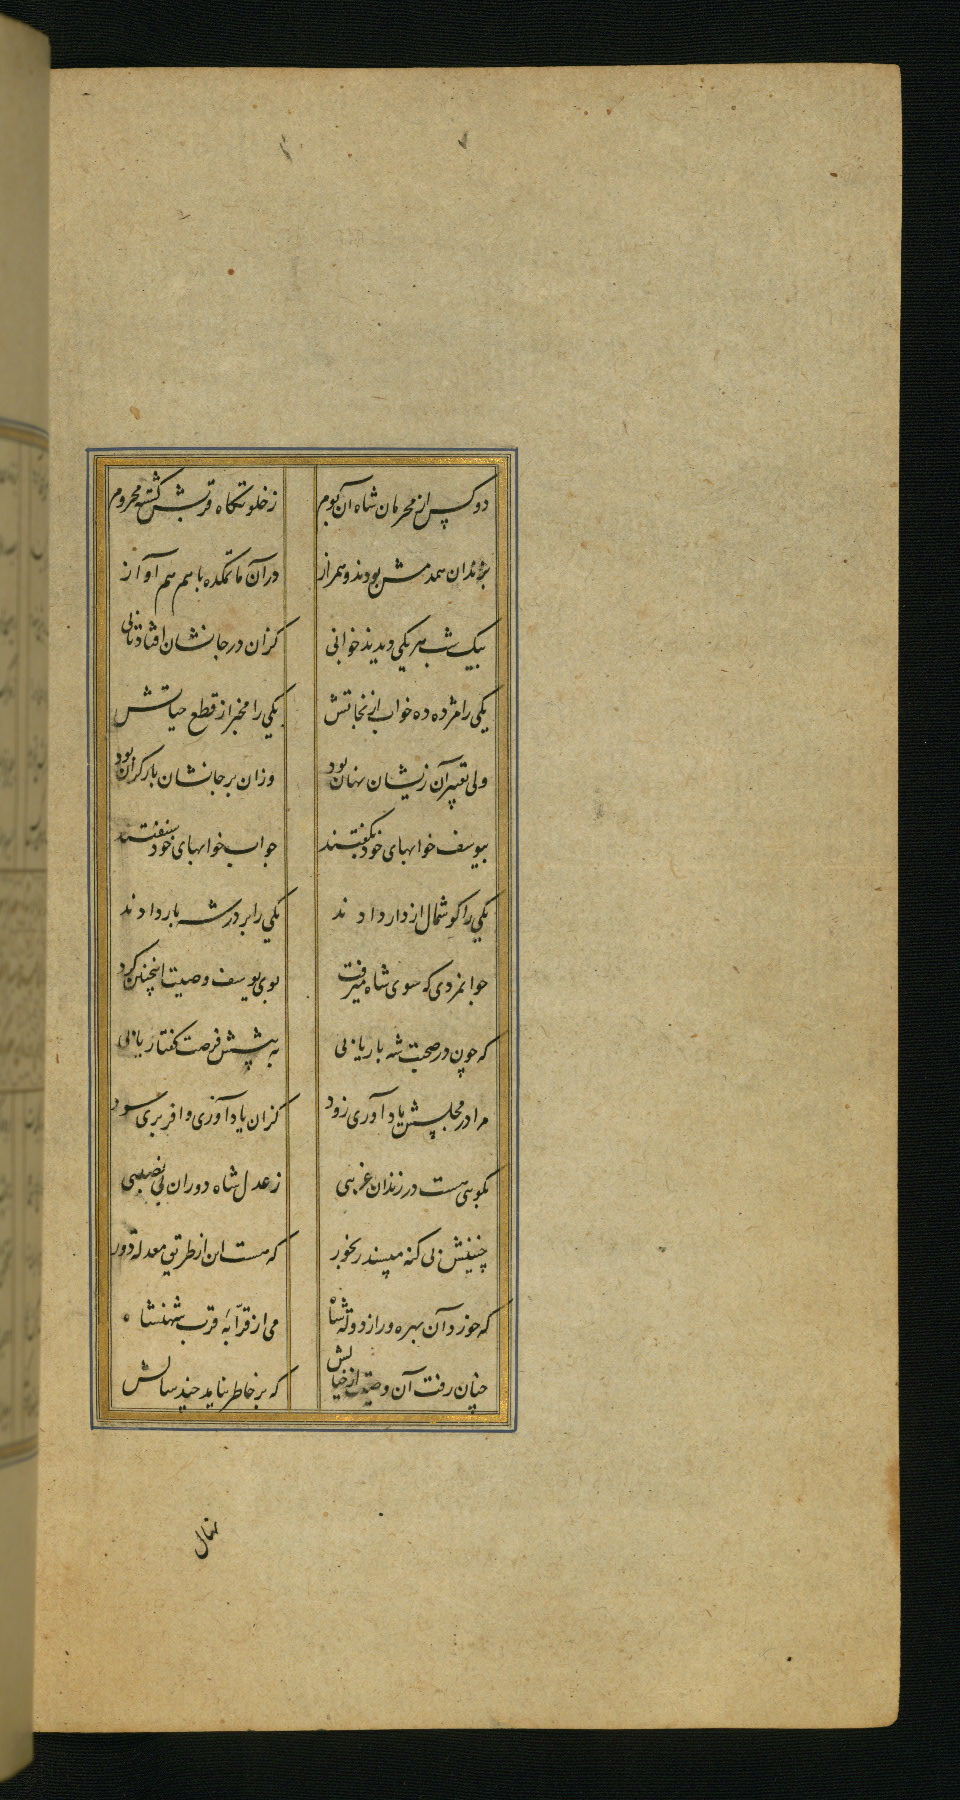 دو کس از محرمان شاه آن بوم ز خلوتگاه قربش گشته محروم
بزندان همدمش بودند و همراز در آن ماتمکده با هم هم آواز
بیک شب هر یکی دیدند خوابی کزان در جانشان افتاد تابی
یکی را مژده ده خواب از نجاتش یکی را مخبر از قطع حیاتش
ولی تعبیر آن زیشان نهان بود وزان بر جانشان بار گران بود
بیوسف خوابهای خود بگفتند جواب خوابهای خود شنفتند
یکی را گوشمال از دار دادند یکی را بر در شه بار دادند
جوانمردی که سوی شاه میرفت بوی یوسف وصیت اینچنین کرد
که چون در صحبت شه بار یابی به پیشش فرصت گفتار یابی
مرا در مجلسش یاد آوری زود کزان یاد آوری وافر بری سود
بگویی هست در زندان غریبی ز عدل شاه دوران بی نصیبی
چنینش بی گنه مپسند رنجور که هست این از طریق معدلت دور
که خورد آن بهره ور از دولت شاه می از قرابه قرب شهنشاه
چنان رفت آن وصیت از خیالش که بر خاطر نیامد چند سالش
نهال